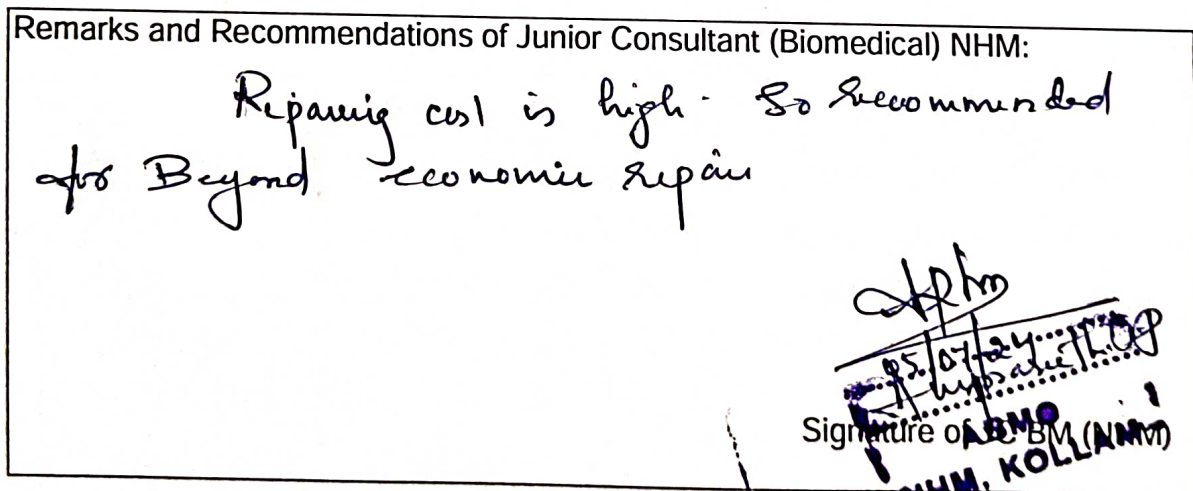 Remarks and Recommendations of Junior Consultant (Biomedical) NHM:
Reparing cost is high. So recommended
for Beyond economic repair
05/07/24
Signature of JC BM (NHM)
ABMO
NHM, KOLLAM